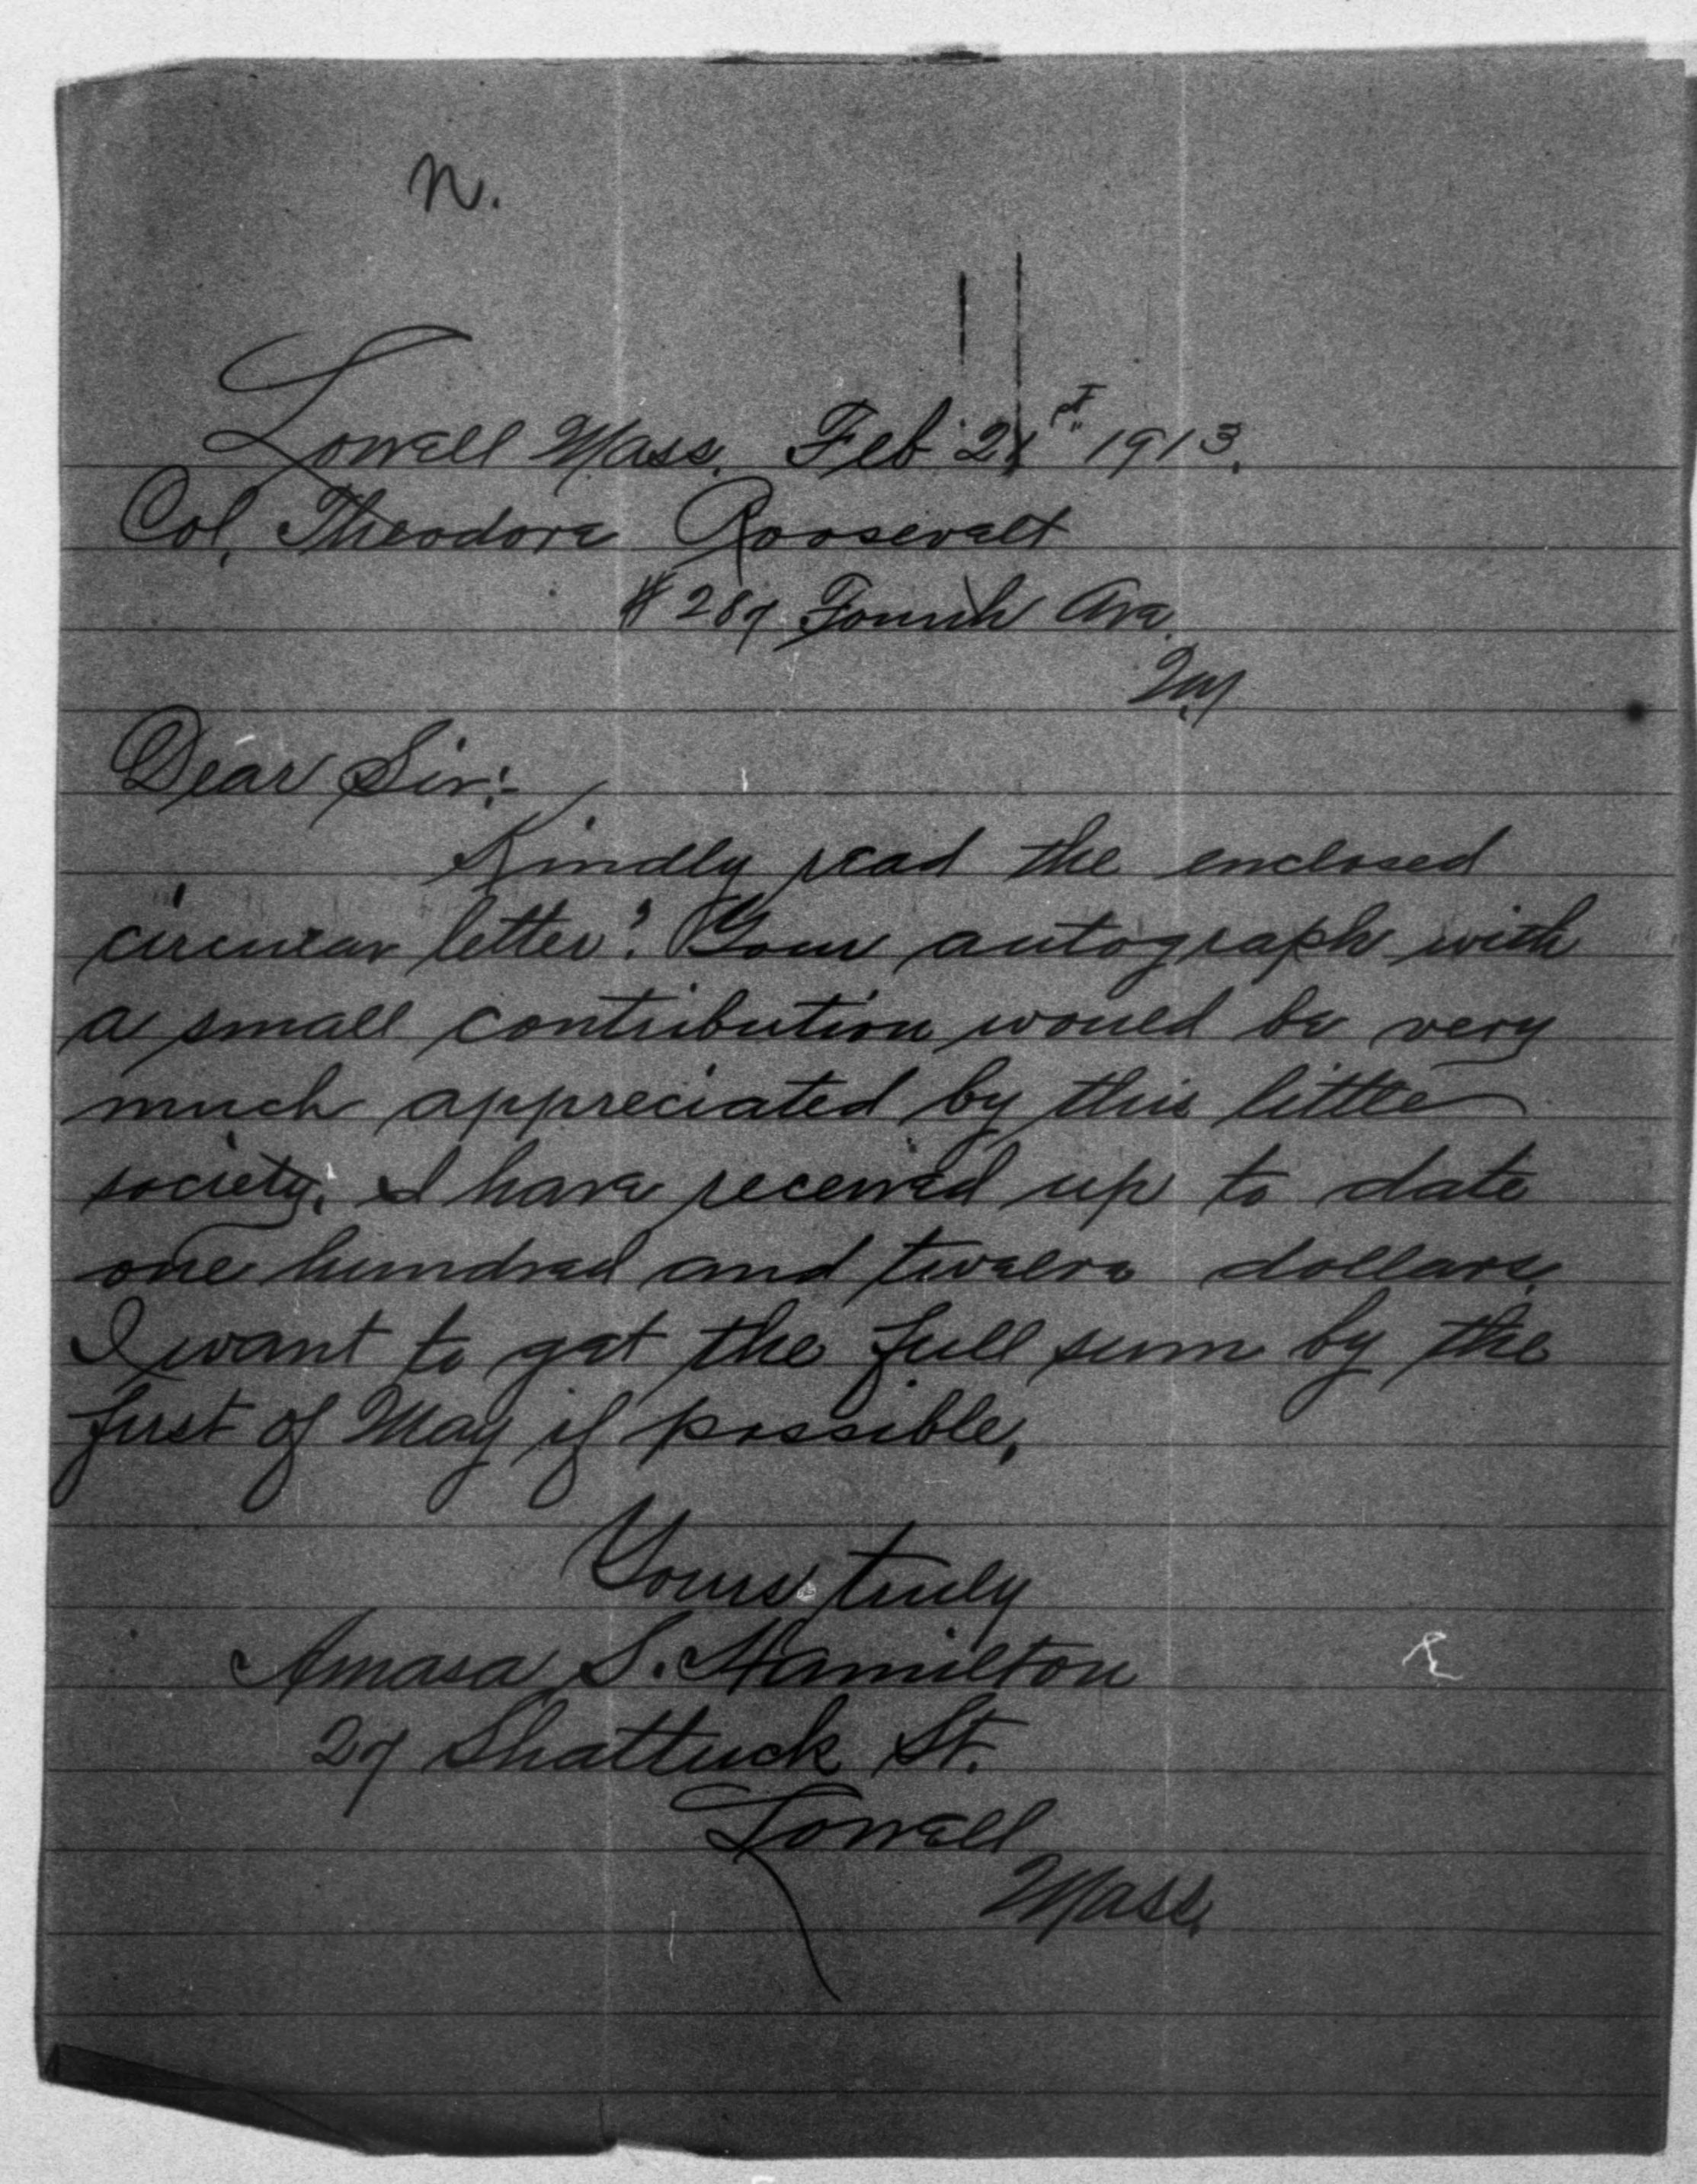 N.
Lowell Mass. Feb 21st 1913.
Col. Theodore Roosevelt
# 287 Fourth Ave.
N.Y
Dear Sir:-
Kindly read the enclosed
"circular letter". Your autograph with
a small contribution would be very
much appreciated by this little
society. I have received up to date
one hundred and twelve dollars.
I want to get the full sum by the
first of May if possible.
Yours truly
Amasa S. Hamilton
27 Shattuck St.
Lowell
Mass.